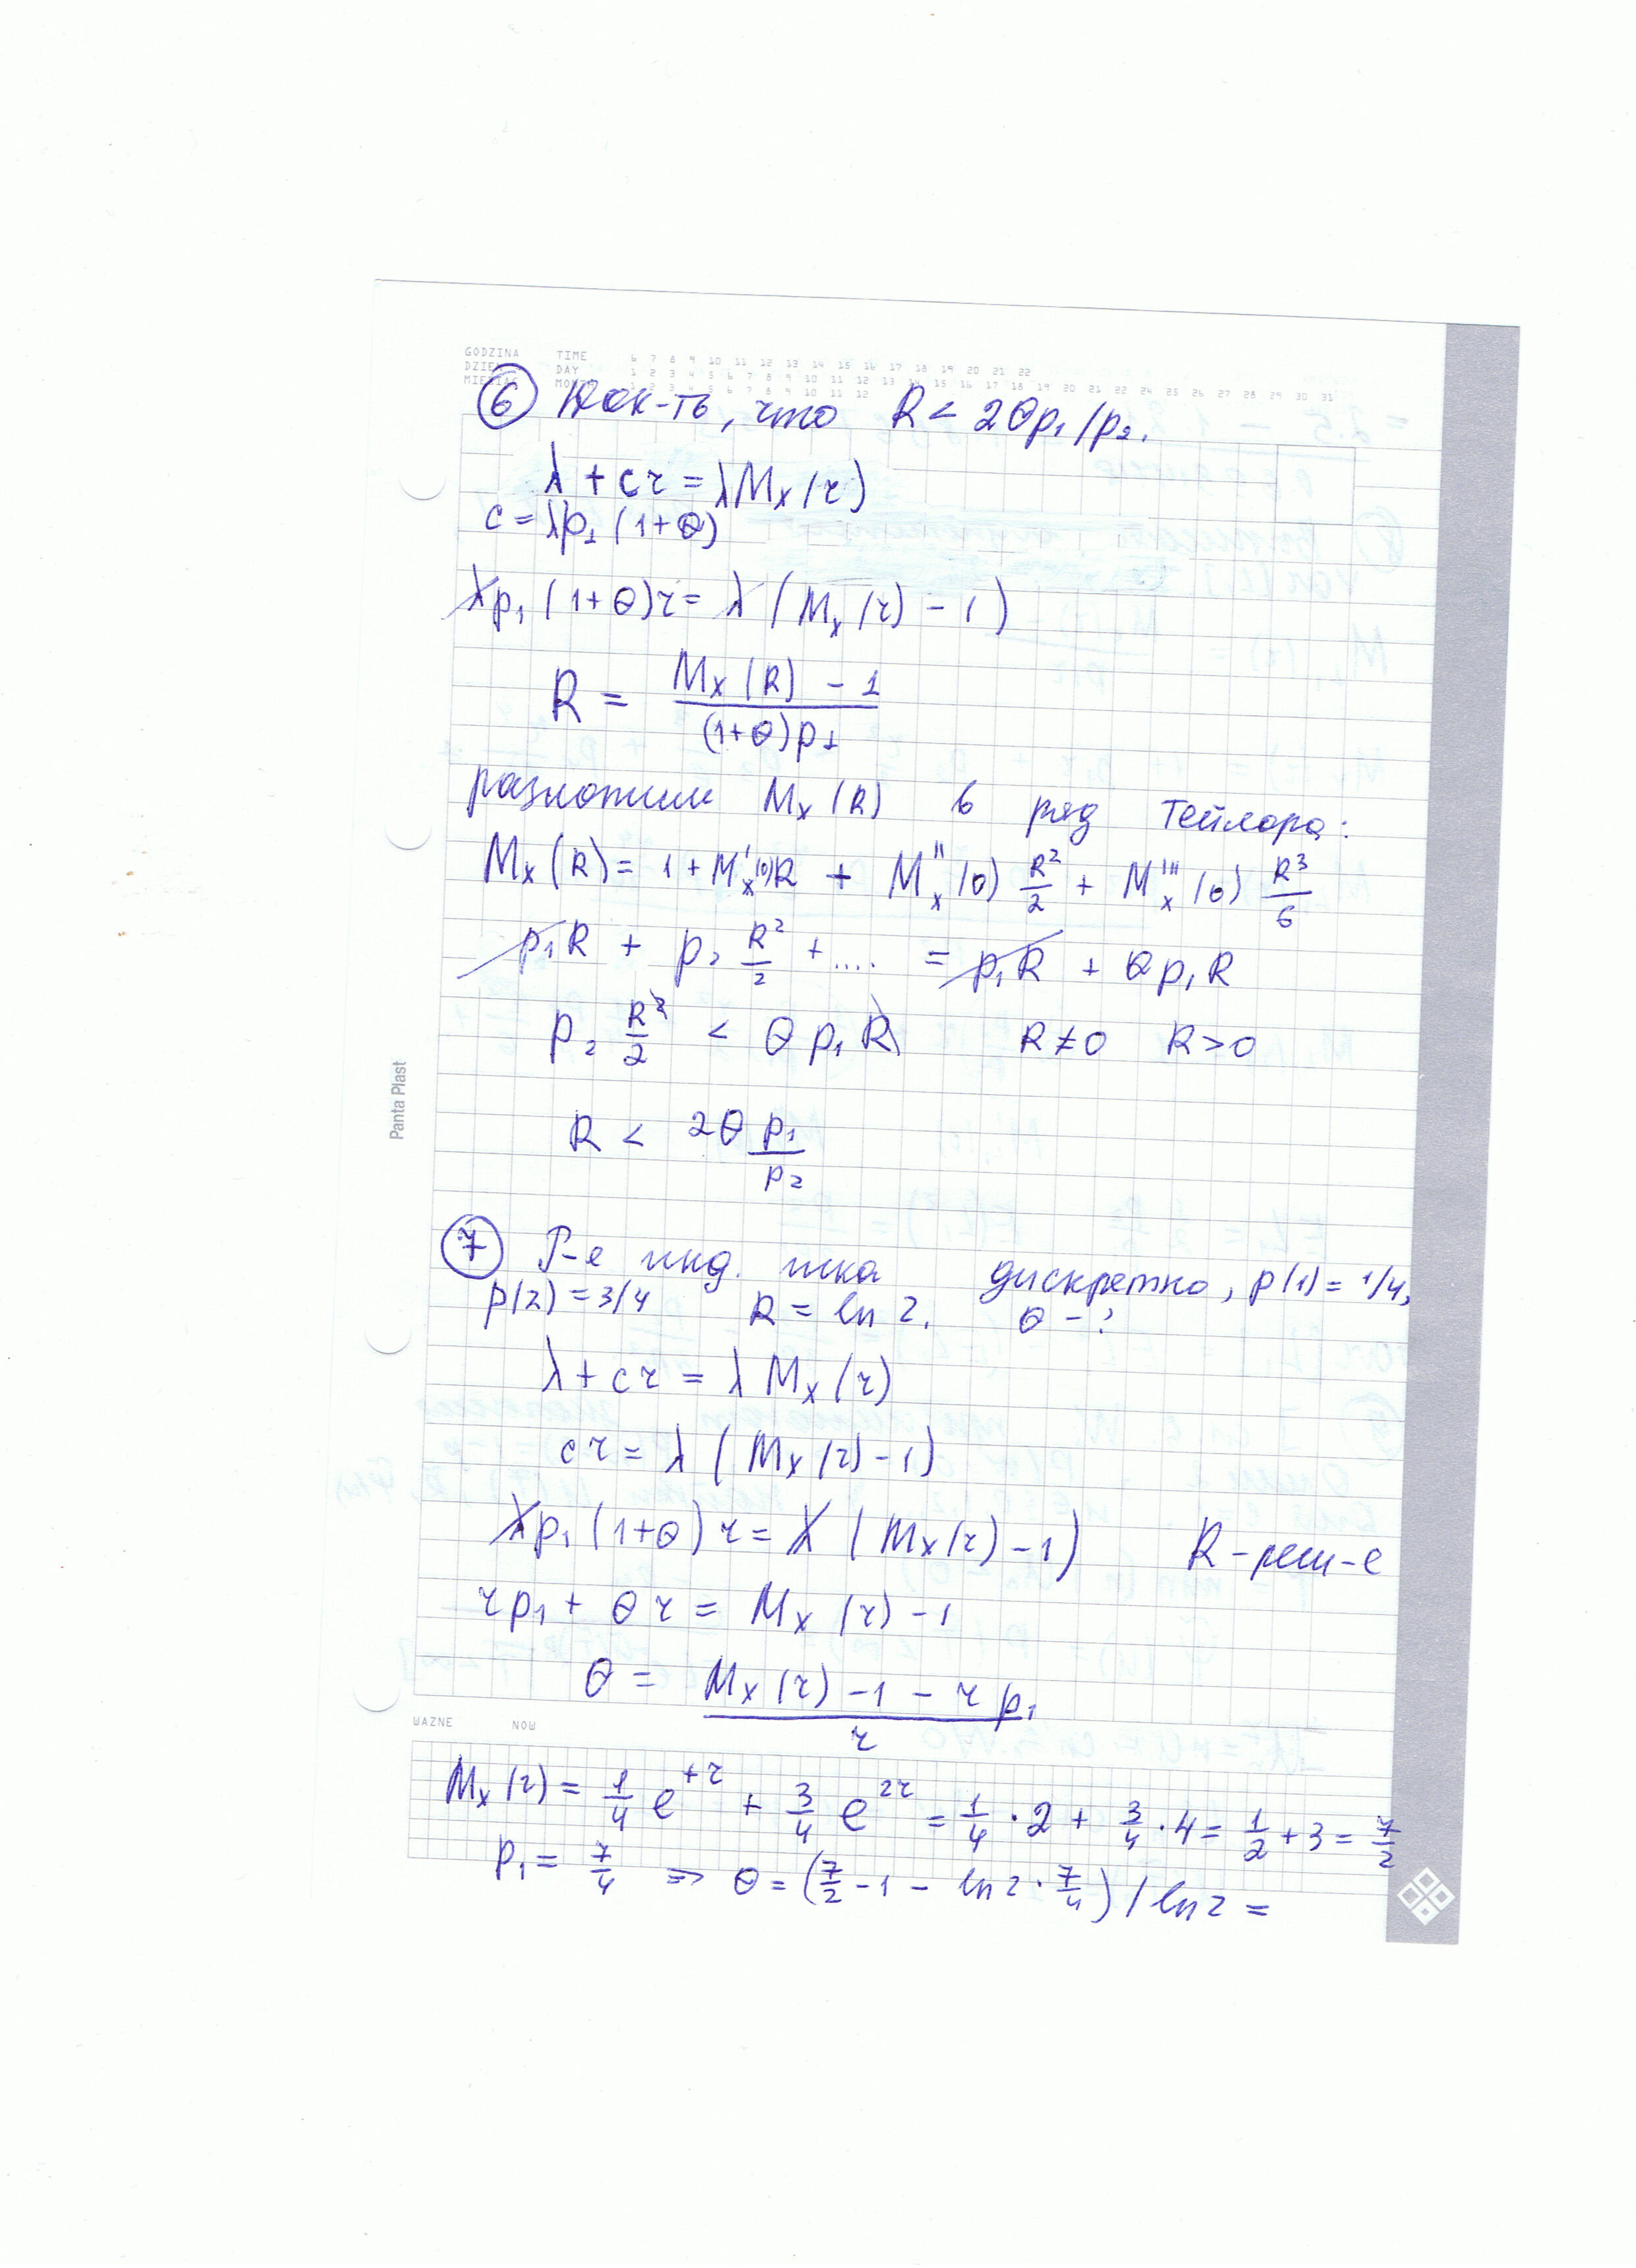 GODZINA TIME 6 7 8 9 10 11 12 13 14 15 16 17 18 19 20 21 22
DZIEŃ DAY 1 2 3 4 5 6 7 8 9 10 11 12 13 14 15 16 17 18 19 20 21 22 23 24 25 26 27 28 29 30 31
MIESIĄC MONTH 1 2 3 4 5 6 7 8 9 10 11 12
⑥ Док-ть, что R < 2θp₁/p₂.
λ + cr = λMₓ(r)
c = λp₁(1+θ)
λp₁(1+θ)r = λ(Mₓ(r) - 1)
R = (Mₓ(R) - 1) / ((1+θ)p₁)
разложим Mₓ(R) в ряд Тейлора:
Mₓ(R) = 1 + Mₓ'(0)R + Mₓ''(0) R²/2 + Mₓ'''(0) R³/6
p₁R + p₂ R²/2 + .... = p₁R + θp₁R
p₂ R²/2 < θp₁R R≠0 R>0
R < 2θ p₁/p₂
Panta Plast
⑦ Р-е инд. иска дискретно, p(1) = 1/4,
p(2) = 3/4 R = ln 2. θ - ?
λ + cr = λMₓ(r)
cr = λ(Mₓ(r) - 1)
λp₁(1+θ)r = λ(Mₓ(r) - 1) R-реш-е
rp₁ + θr = Mₓ(r) - 1
θ = (Mₓ(r) - 1 - rp₁) / r
WAŻNE NOW
Mₓ(r) = 1/4 e^{+r} + 3/4 e^{2r} = 1/4 · 2 + 3/4 · 4 = 1/2 + 3 = 7/2
p₁ = 7/4 => θ = (7/2 - 1 - ln 2 · 7/4) / ln 2 =